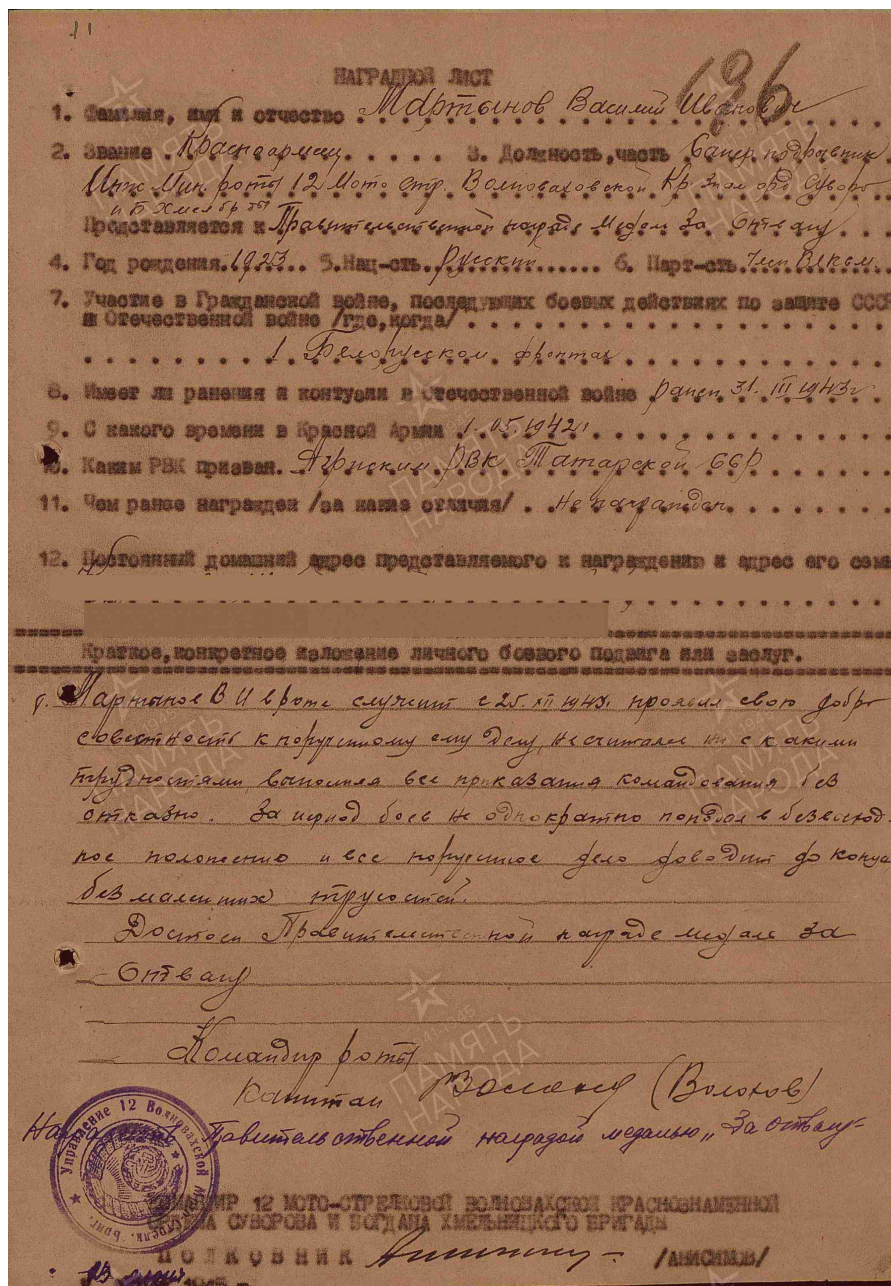 11
136
НАГРАДНОЙ ЛИСТ
1. Фамилия, имя и отчество Мартынов Василий Иванович
2. Звание Красноармеец 3. Должность, часть Сапер подрывник
Инж Мин. роты 12 Мото стр. Волноваховской Кр Знам орд Суворо
и Б Хмел бр ды
Представляется к Правительственной награде медали За Отвагу
4. Год рождения 1923 5. Нац-сть русский 6. Парт-сть Член ВЛКСМ
7. Участие в Гражданской войне, последующих боевых действиях по защите СССР
и Отечественной войне /где, когда/
1 Белорусском фронтах
8. Имеет ли ранения и контузии в Отечественной войне ранен 31. III 1943г
9. С какого времени в Красной Армии 1.05.1942
10. Каким РВК призван. Агрыским РВК Татарской ССР
11. Чем ранее награжден /за какие отличия/ Не награжден
12. Постоянный домашний адрес представляемого к награждению и адрес его семьи
Краткое, конкретное изложение личного боевого подвига или заслуг.
т. Мартынов В И в роте служит с 25. XII 194 проявил свою добро
совестность к порученному ему делу, не считался ни с какими
трудностями, выполнял все приказания командования без
отказно. За период боев не однократно попадал в безвыход
ное положению и все порученное дело доводил до конца
без малейших трусостей.
Достоен Правительственной награде медале За
Отвагу
Командир роты
Капитан (Волохов)
Правительственной наградой медалью „За отвагу"
КОМАНДИР 12 МОТО-СТРЕЛКОВОЙ ВОЛНОВАХСКОЙ КРАСНОЗНАМЕННОЙ
ОРДЕНА СУВОРОВА И БОГДАНА ХМЕЛЬНИЦКОГО БРИГАДЫ
ПОЛКОВНИК /АНИСИМОВ/
Управление 12 Волновахской
ПАМЯТЬ НАРОДА